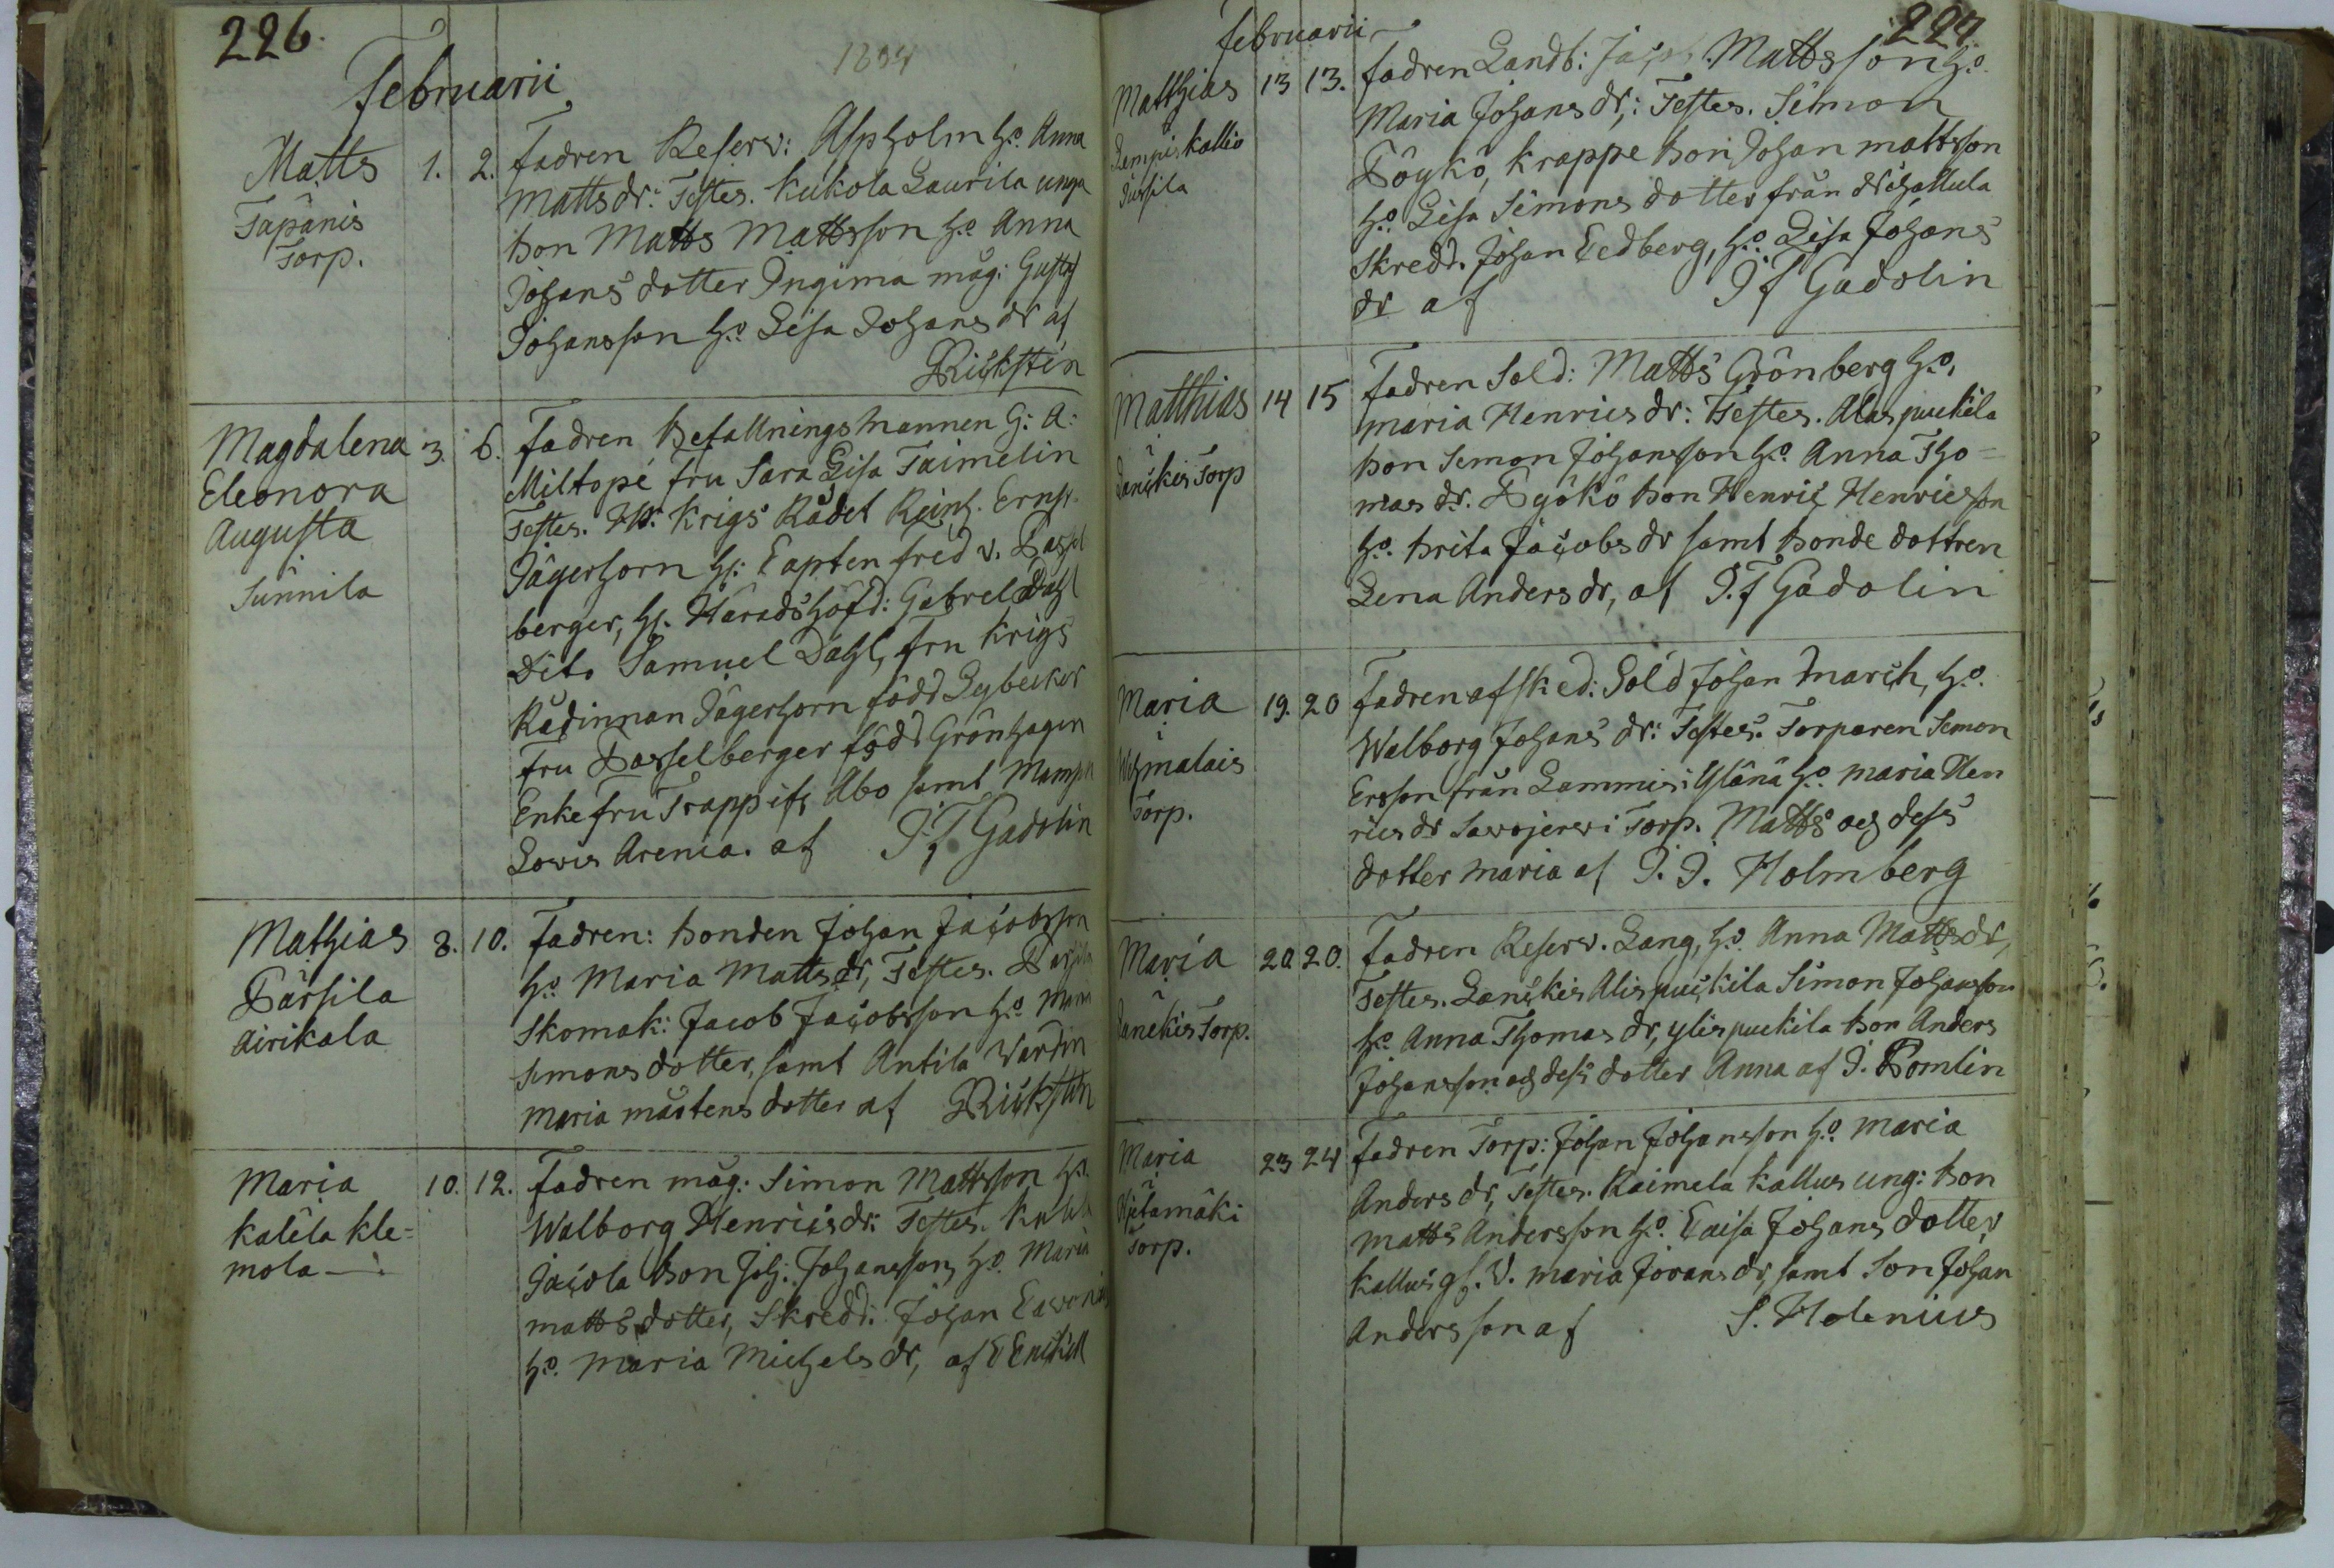 226.
1804
Februarii
Matts
Tapänis
Torp.
1. 2. Fadren Reserv: Aspholm h:o Anna
Matts dr: Testes. Kukola Laurila unga
bon Matts Mattsson h:o Anna
Johans dotter Ingima måg: Gustaf
Johansson h:o Lisa Johans dr af
Rickstén
Magdalena
Eleonora
Augusta
Sunnila
3. 6. Fadren Befallningsmannen G: A:
Miltopé fru Sara Lisa Taimelin
Testes. Krigs Rådet Reinh. Ernst
Jägerhorn hr: Capten Fred v.
berger, hr. Häradshöfd: Gabrel Dahl
Dito Samuel Dahl, fru Krigs
Rådinnan Jägerhorn född Lybecker
fru född Grönhagen
Enke fru Trapp ifr Abo samt Mamsel
Lovis Arenia. af J. F Gadolin
Mathias
Pärsila
Airikala
8. 10. Fadren: bonden Johan Jacobsson
h:o Maria Matts dr, Testes.
Skomak: Jacob Jacobsson h:o Maria
Simons dotter, samt Antila Värdin
Maria mårtens dotter af Rickstén
Maria
Kalela Kle=
mola
10. 12. Fadren måg: Simon Mattsson h:o
Walborg Henrics dr: Testes.
Jacola bon Joh: Johansson, h:o Maria
matts dotter, Skredd: Johan
h:o Maria Michels dr, af E Enckell
227.
februarii
Matthias
kallio
13 13. fadren Landb: Mattsson h:o
Maria Johans dr,: Testes. Simon
Pöykö, Krappe bon Johan mattsson
h:o Lisa Simons dotter från
Skredd. Johan Cedberg, h:o Lisa Johans
dr af J f Gadolin
Matthias
i
Lanckis Torp
14 15 Fadren Sold: Matts Grönberg h:o,
maria Henrics dr: Testes. Alas puckila
bon Simon Johansson h:o Anna Tho=
mas dr. Pyökö bon Henric Henricsson
h:o. brita Jacobs dr samt bonde dottren
Lena Anders dr, af J. F Gadolin
Maria
i
Torp.
19. 20 Fadren afsked: Sold Johan March, h:o.
Walborg Johans dr: Testes. Torparen Simon
Ersson från Lammis i Yläna h:o maria Hen
rics dr Savojervi Torp. Matts och dess
dotter maria af J. J. Holmberg
Maria
i
Lanckis Torp.
20. 20. Fadren Reserv. Lang, h:o Anna Matts dr,
Testes. Lanckis Alis puckila Simon Johansson
h:o Anna Thomas dr, ylis puckila bon Anders
Johansson och dess dotter Anna af J. Pomlin
Maria
i
Torp.
23 24 Fadren Torp: Johan Johansson h:o maria
Anders dr, Testes. Kaimela Kallus ung: bon
matts Andersson h:o Caisa Johans dotter
Kallus gl. V. maria Jörans dr, samt Son Johan
Andersson af S. Helenius